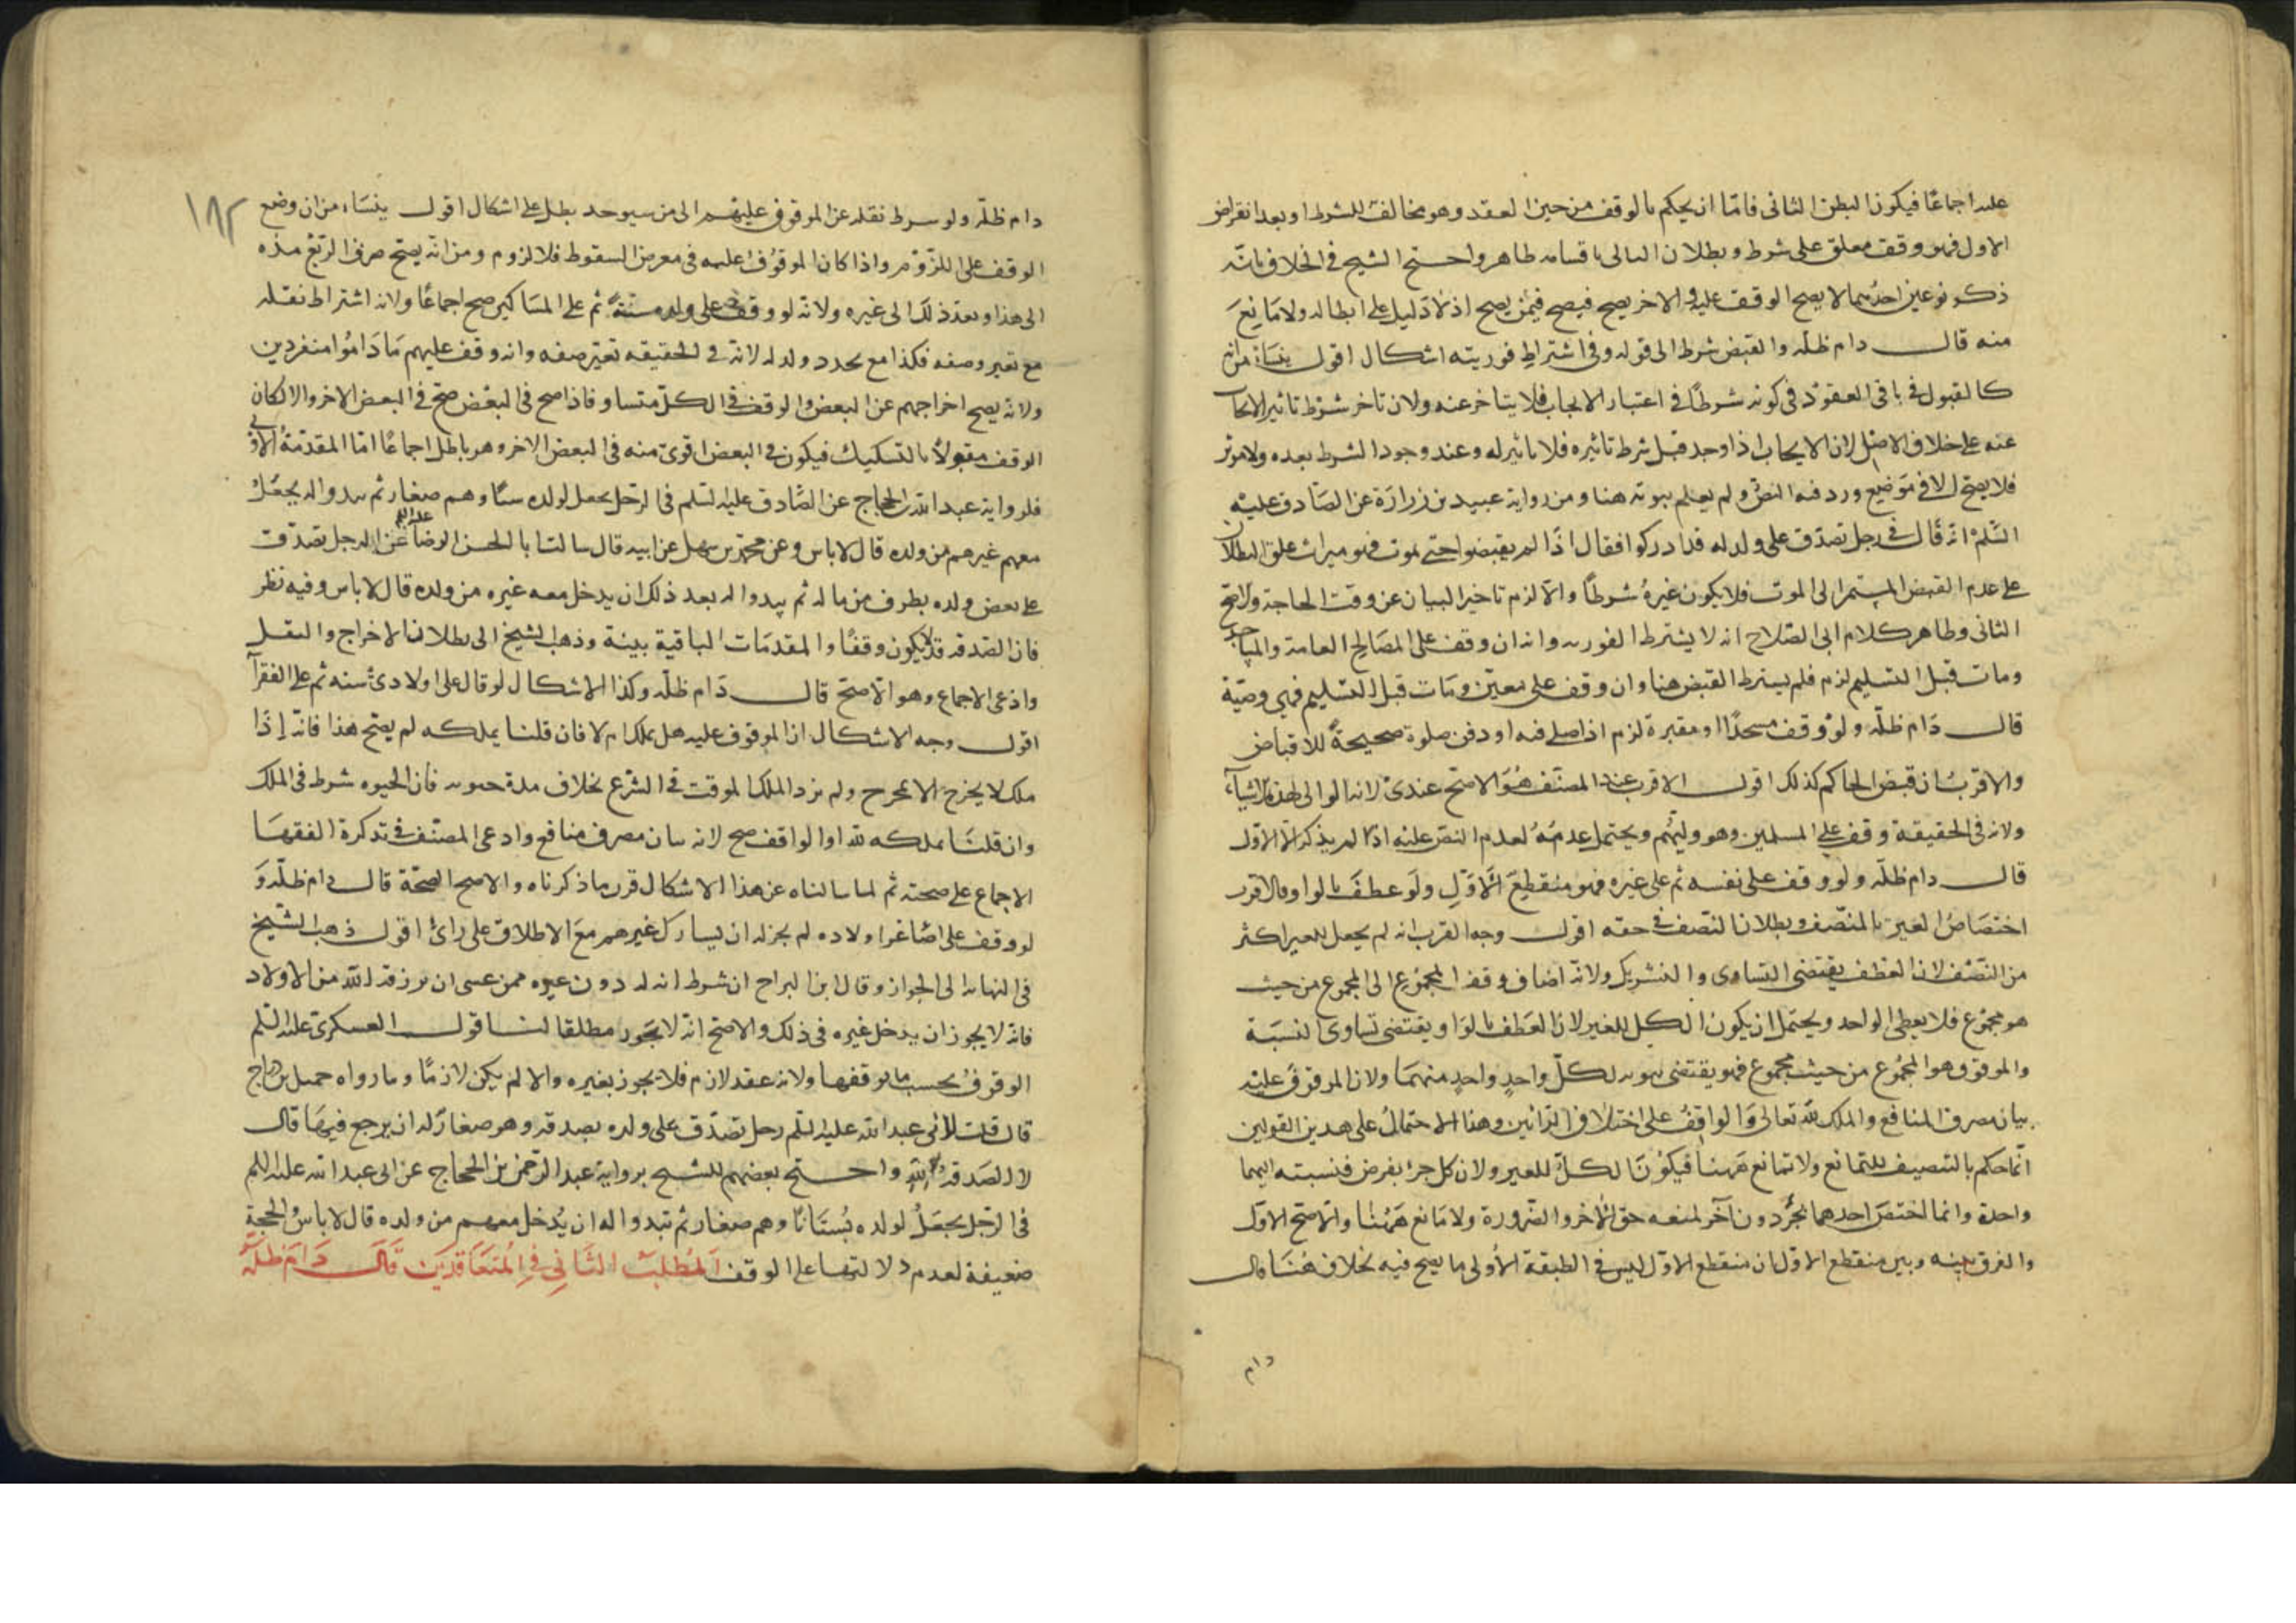 عليه اجماعًا فيكون البطن الثانى فامّا ان يحكم بالوقف من حين العقد وهو مخالف للشرط او بعد انقراض
الاول فهو وقف معلق على شرط وبطلان التالى باقسامه ظاهر واحتج الشيخ فى الخلاف بانّه
ذكر نوعين احدهما لا يصح الوقف عليه والاخر يصح فيصح فيمن يصح اذ لا دليل على ابطاله ولا مانع
منه قال دام ظلّه والقبض شرط الى قوله وفى اشتراط فوريته اشكال اقول ينشاء من انه
كالقبول فى باقى العقود فى كونه شرطًا فى اعتبار الايجاب فلا يتاخر عنه ولان تاخر شرط تاثير الايجاب
عنه على خلاف الاصل لان الايجاب اذا وجد قبل شرط تاثيره فلا تاثير له وعند وجود الشرط بعده ولا موثر
فلا يصح الا فى موضع ورد فيه النص ولم يعلم ثبوته هنا ومن رواية عبيد بن زرارة عن الصادق عليه
السّلم انه قال فى رجل تصدّق على ولد له قد ادركوا فقال اذا لم يقبضوا حتى يموت فهو ميراث علق البطلان
على عدم القبض المستمر الى الموت فلا يكون غيره شرطًا والا لزم تاخير البيان عن وقت الحاجة ولا يصح
الثانى وظاهر كلام ابى الصّلاح انه لا يشترط الفوريه وانه ان وقف على المصالح العامة والمساجد
ومات قبل التسليم لزم فلم يشترط القبض هنا وان وقف على معيّن ومات قبل التسليم فهى وصيّة
قال دام ظلّه ولو وقف مسجدًا او مقبرة لزم اذا صلى فيه او دفن صلوة صحيحة للاقباض
والاقرب ان قبض الحاكم كذلك اقول الاقرب عند المصنّف هو الاصح عندى لانه الوالى لهذه الاشياء
ولانه فى الحقيقة وقف على المسلمين وهو وليّهم ويحتمل عدمه لعدم النص عليه اذا لم يذكر الا الاول
قال دام ظلّه ولو وقف على نفسه ثم على غيره فهو منقطع الاوّل ولو عطف بالواو فالاقرب
اختصاص الغير بالنصف وبطلان النصف فى حقه اقول وجه القرب انه لم يجعل للغير اكثر
من النصف لان العطف يقتضى التساوى والتشريك ولانه اضاف وقف المجموع الى المجموع من حيث
هو مجموع فلا يعطى الواحد ويحتمل ان يكون الكل للغير لان العطف بالواو يقتضى تساوى النسبة
والموقوف هو المجموع من حيث مجموع فهو يقتضى ثبوته لكلّ واحدٍ واحدٍ منهما ولان الموقوف عليه
بيان مصرف المنافع والملك لله تعالى والواقف على اختلاف الرّائين وهذا الاحتمال على هذين القولين
انّما حكم بالتنصيف للتمانع ولا تمانع هٰهنا فيكون الكل للغير ولان كل جزء يفرض فنسبته اليهما
واحدة وانما اختص احدهما بجزء دون آخر لمنعه حق الآخر والضرورة ولا مانع هٰهنا والاصح الاوّل
والفرق بينه وبين منقطع الاوّل ان منقطع الاوّل ليس فى الطبقة الاولى ما يصح فيه بخلاف هنا قال
دام
١٨٢
دام ظلّه ولو شرط نقله عن الموقوف عليهم الى من سيوجد بطل على اشكال اقول ينشاء من ان وضع
الوقف على اللزوم واذا كان الموقوف عليه فى معرض السقوط فلا لزوم ومن انه يصح صرف الرّيع مدّة
الى هذا وبعد ذلك الى غيره ولانّه لو وقف على ولده سنة ثم على المساكين صح اجماعًا ولانه اشتراط نقله
مع تغير وصفه فكذا مع تجدد ولد له لانه فى الحقيقه تغير صفه وانه وقف عليهم ما داموا منفردين
ولانه يصح اخراجهم عن البعض والوقف فى الكلّ متساو فاذا صح فى البعض صح فى البعض الاخر والا لكان
الوقف مقولًا بالتشكيك فيكون فى البعض اقوى منه فى البعض الاخر وهو باطل اجماعًا امّا المقدّمة الاولى
فلرواية عبد الرحمن الحجاج عن الصّادق عليه السّلم فى الرّجل يجعل لولده شيئًا وهم صغار ثم يبدو له يجعل
معهم غيرهم من ولده قال لا باس وعن محمّد بن سهل عن ابيه قال سالت ابا الحسن الرضا عليه السلم عن الرجل تصدّق
على بعض ولده بطرف من ماله ثم يبدو له بعد ذلك ان يدخل معه غيره من ولده قال لا باس وفيه نظر
فان الصّدقه قد لا يكون وقفًا والمقدمات الباقية بينة وذهب الشيخ الى بطلان الاخراج والنقل
وادّعى الاجماع وهو الاصحّ قال دام ظلّه وكذا الاشكال لو قال على اولادى سنه ثم على الفقراء
اقول وجه الاشكال ان الموقوف عليه هل يملك ام لا فان قلنا يملكه لم يصح هذا فانّه اذا
ملك لا يخرج الا بمخرج ولم يرد الملك الموقت فى الشرع بخلاف مدة حيوته فان الحيوه شرط فى الملك
وان قلنا يملكه لله او الواقف صح لانه بيان مصرف منافع وادعى المصنّف فى تذكرة الفقها
الاجماع على صحته ثم لما سالناه عن هذا الاشكال قرر ما ذكرناه والاصح الصحّة قال دام ظلّه و
لو وقف على اصاغر اولاده لم يجز له ان يشارك غيرهم مع الاطلاق على رائ اقول ذهب الشيخ
فى النهايه الى الجواز وقال ابن البراج ان شرط انه له دون غيره ممن عسى ان يرزقه الله من الاولاد
فانّه لا يجوز ان يدخل غيره فى ذلك والاصحّ انّه لا يجوز مطلقا لنا قول العسكرى عليه السّلم
الوقوف بحسب ما يوقفها ولانه عقد لازم فلا يجوز بغيره والا لم يكن لازمًا وما رواه جميل بن دراج
قال قلت لابى عبد الله عليه السّلم رجل تصدّق على ولده بصدقه وهو صغار له ان يرجع فيها قال
لا الصدقة لله واحتج بعضهم للشيخ برواية عبد الرّحمن بن الحجاج عن ابى عبد الله عليه السلم
فى الرّجل يجعل لولده بُستانًا وهم صغار ثم تبدو اله ان يُدخل معهم من ولده قال لا باس والحجة
ضعيفة لعدم دلالتها على الوقف المطلب الثانى فى المتعاقدين قال دام ظلّه